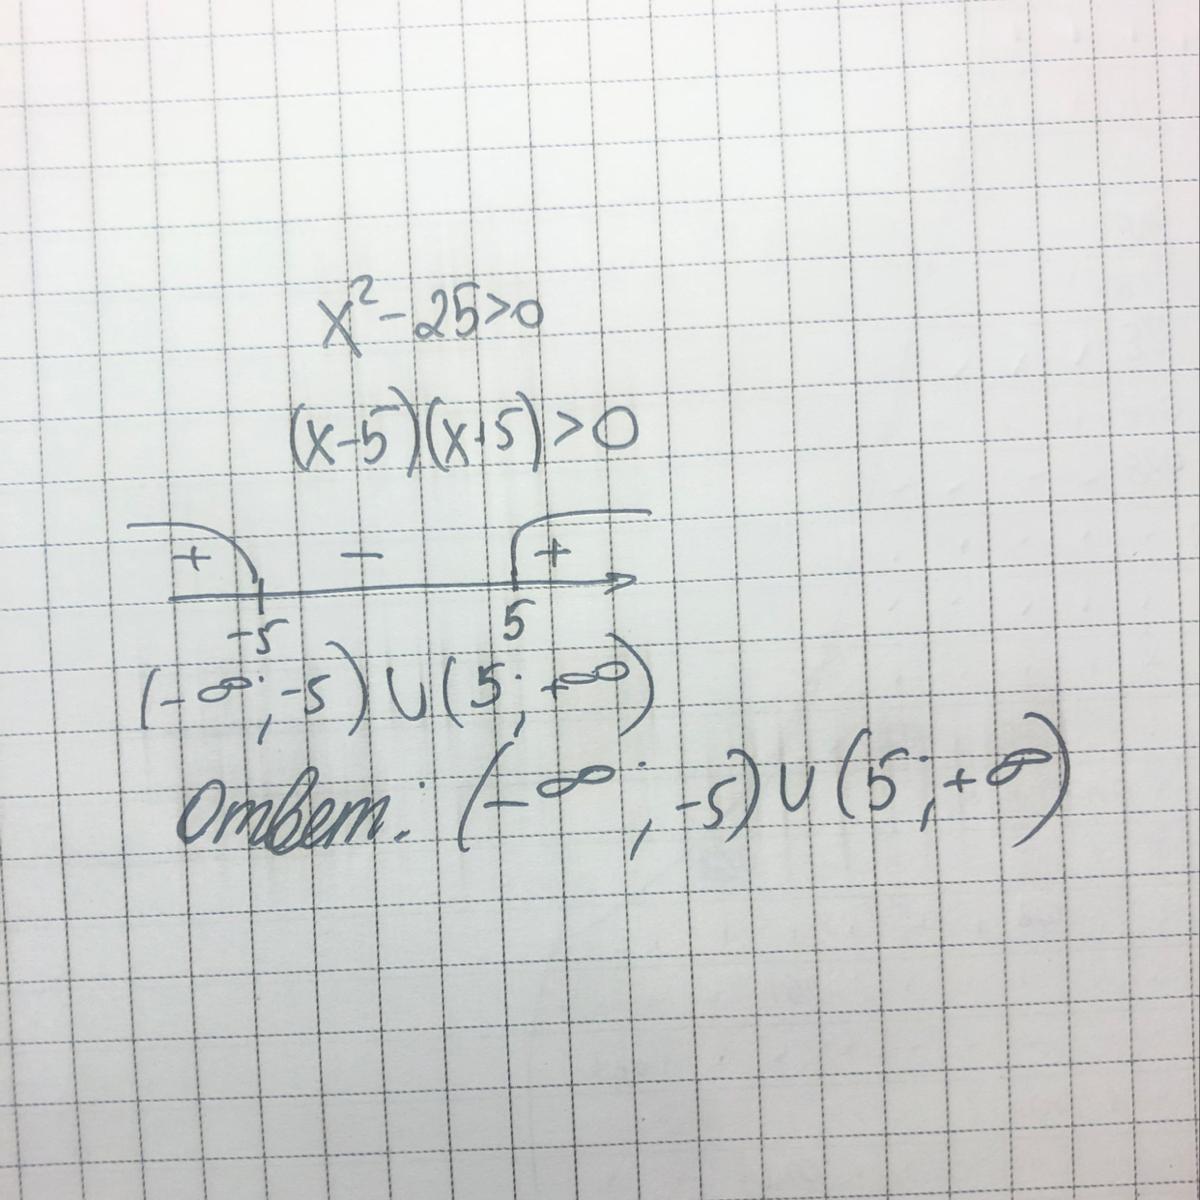 x² - 25 > 0
(x-5)(x+5) > 0
+ − +
-5 5
(-∞; -5) ∪ (5; +∞)
Ответ: (-∞; -5) ∪ (5; +∞)